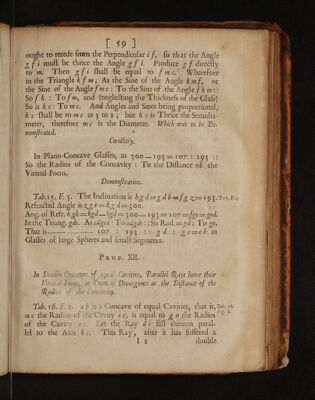 [ 59 ]
ought to recede from the Perpendicular i f, so that the Angle
g f i must be thrice the Angle g f l. Produce g f directly
to m. Then g f i shall be equal to f m c. Wherefore
in the Triangle k f m; As the Sine of the Angle k m f, or
the Sine of the Angle f m c : To the Sine of the Angle f k m ::
So f k : To f m, and (neglecting the Thickness of the Glass)
So is k c : To m c. And Angles and Sines being proportional,
k c shall be to m c as 3 to 2; but k c is Thrice the Semidia-
meter, therefore m c is the Diameter. Which was to be De-
monstrated.
Corollary.
In Plano-Concave Glasses, as 300 — 193 = 107 : 193 ::
So the Radius of the Concavity : To the Distance of the
Virtual Focus.
Demonstration.
Tab.15. F. 5. The Inclination is h g d = g d b = f g z = 193. T.15. F.5.
Refracted Angle is z g e = k g d = 300.
Ang. of Refr. k g h = k g d — h g d = 300 — 193 = 107 = f g e = g e d.
In the Triang. g d e. As s ∠ g e d : To s ∠ g d e :: So Rad. = g d : To g e.
That is — 107 : 193 :: g d : g e = e b in
Glasses of large Spheres and small Segments.
PROP. XII.
In Double Concaves of equal Cavities, Parallel Rays have their
Virtual Focus, or Point of Divergence at the Distance of the
Radius of the Concavity.
Tab. 16. F. 2. a b is a Concave of equal Cavities, that is, Tab. 16.
m c the Radius of the Cavity e c, is equal to g n the Radius Fig. 2.
of the Cavity Let the Ray d i fall thereon paral-
lel to the Axis k c. This Ray, after it has suffered a
I 2 double